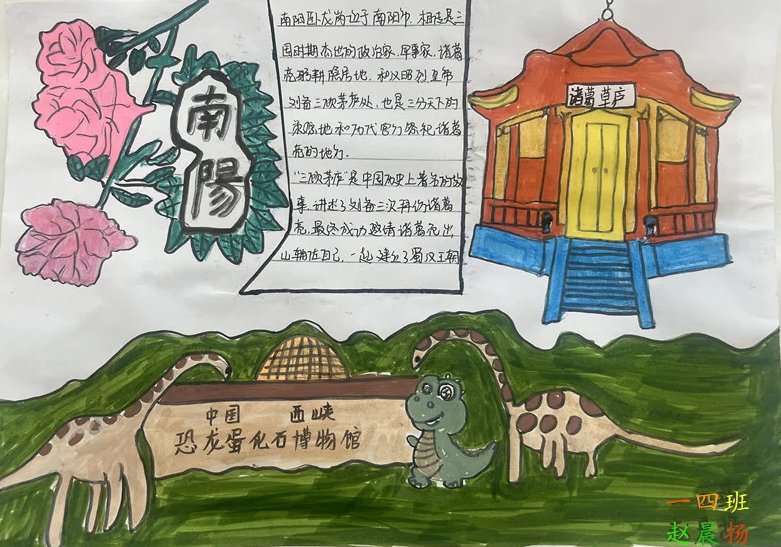 南陽
南阳卧龙岗位于南阳市,相传是三
国时期杰出的政治家、军事家,诸葛
亮躬耕隐居地,和汉昭烈皇帝
刘备三顾茅庐处,也是三分天下的
策源地和历代官们祭祀诸葛
亮的地方.
"三顾茅庐"是中国历史上著名的故
事,讲述了刘备三次拜访诸葛
亮,最终成功邀请诸葛亮出
山辅佐自己,一起建立了蜀汉王朝
诸葛草庐
中国 西峡
恐龙蛋化石博物馆
一四班
赵晨扬